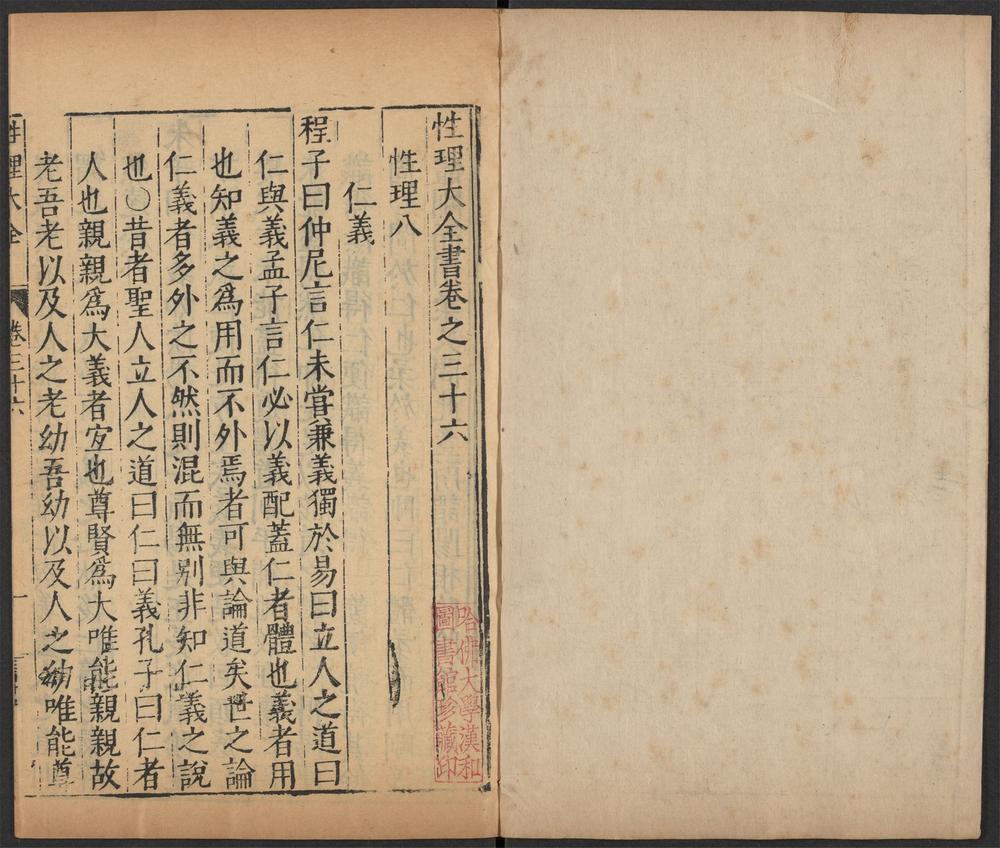 性理大全書卷之三十六
性理八
仁義
程子曰仲尼言仁未嘗兼義獨於易曰立人之道曰
仁與義孟子言仁必以義配蓋仁者體也義者用
也知義之爲用而不外焉者可與論道矣世之論
仁義者多外之不然則混而無别非知仁義之說
也○昔者聖人立人之道曰仁曰義孔子曰仁者
人也親親爲大義者宐也尊賢爲大唯能親親故
老吾老以及人之老幼吾幼以及人之幼唯能尊
性理大全
卷三十六
一
哈佛大學漢和
圖書館珍藏印